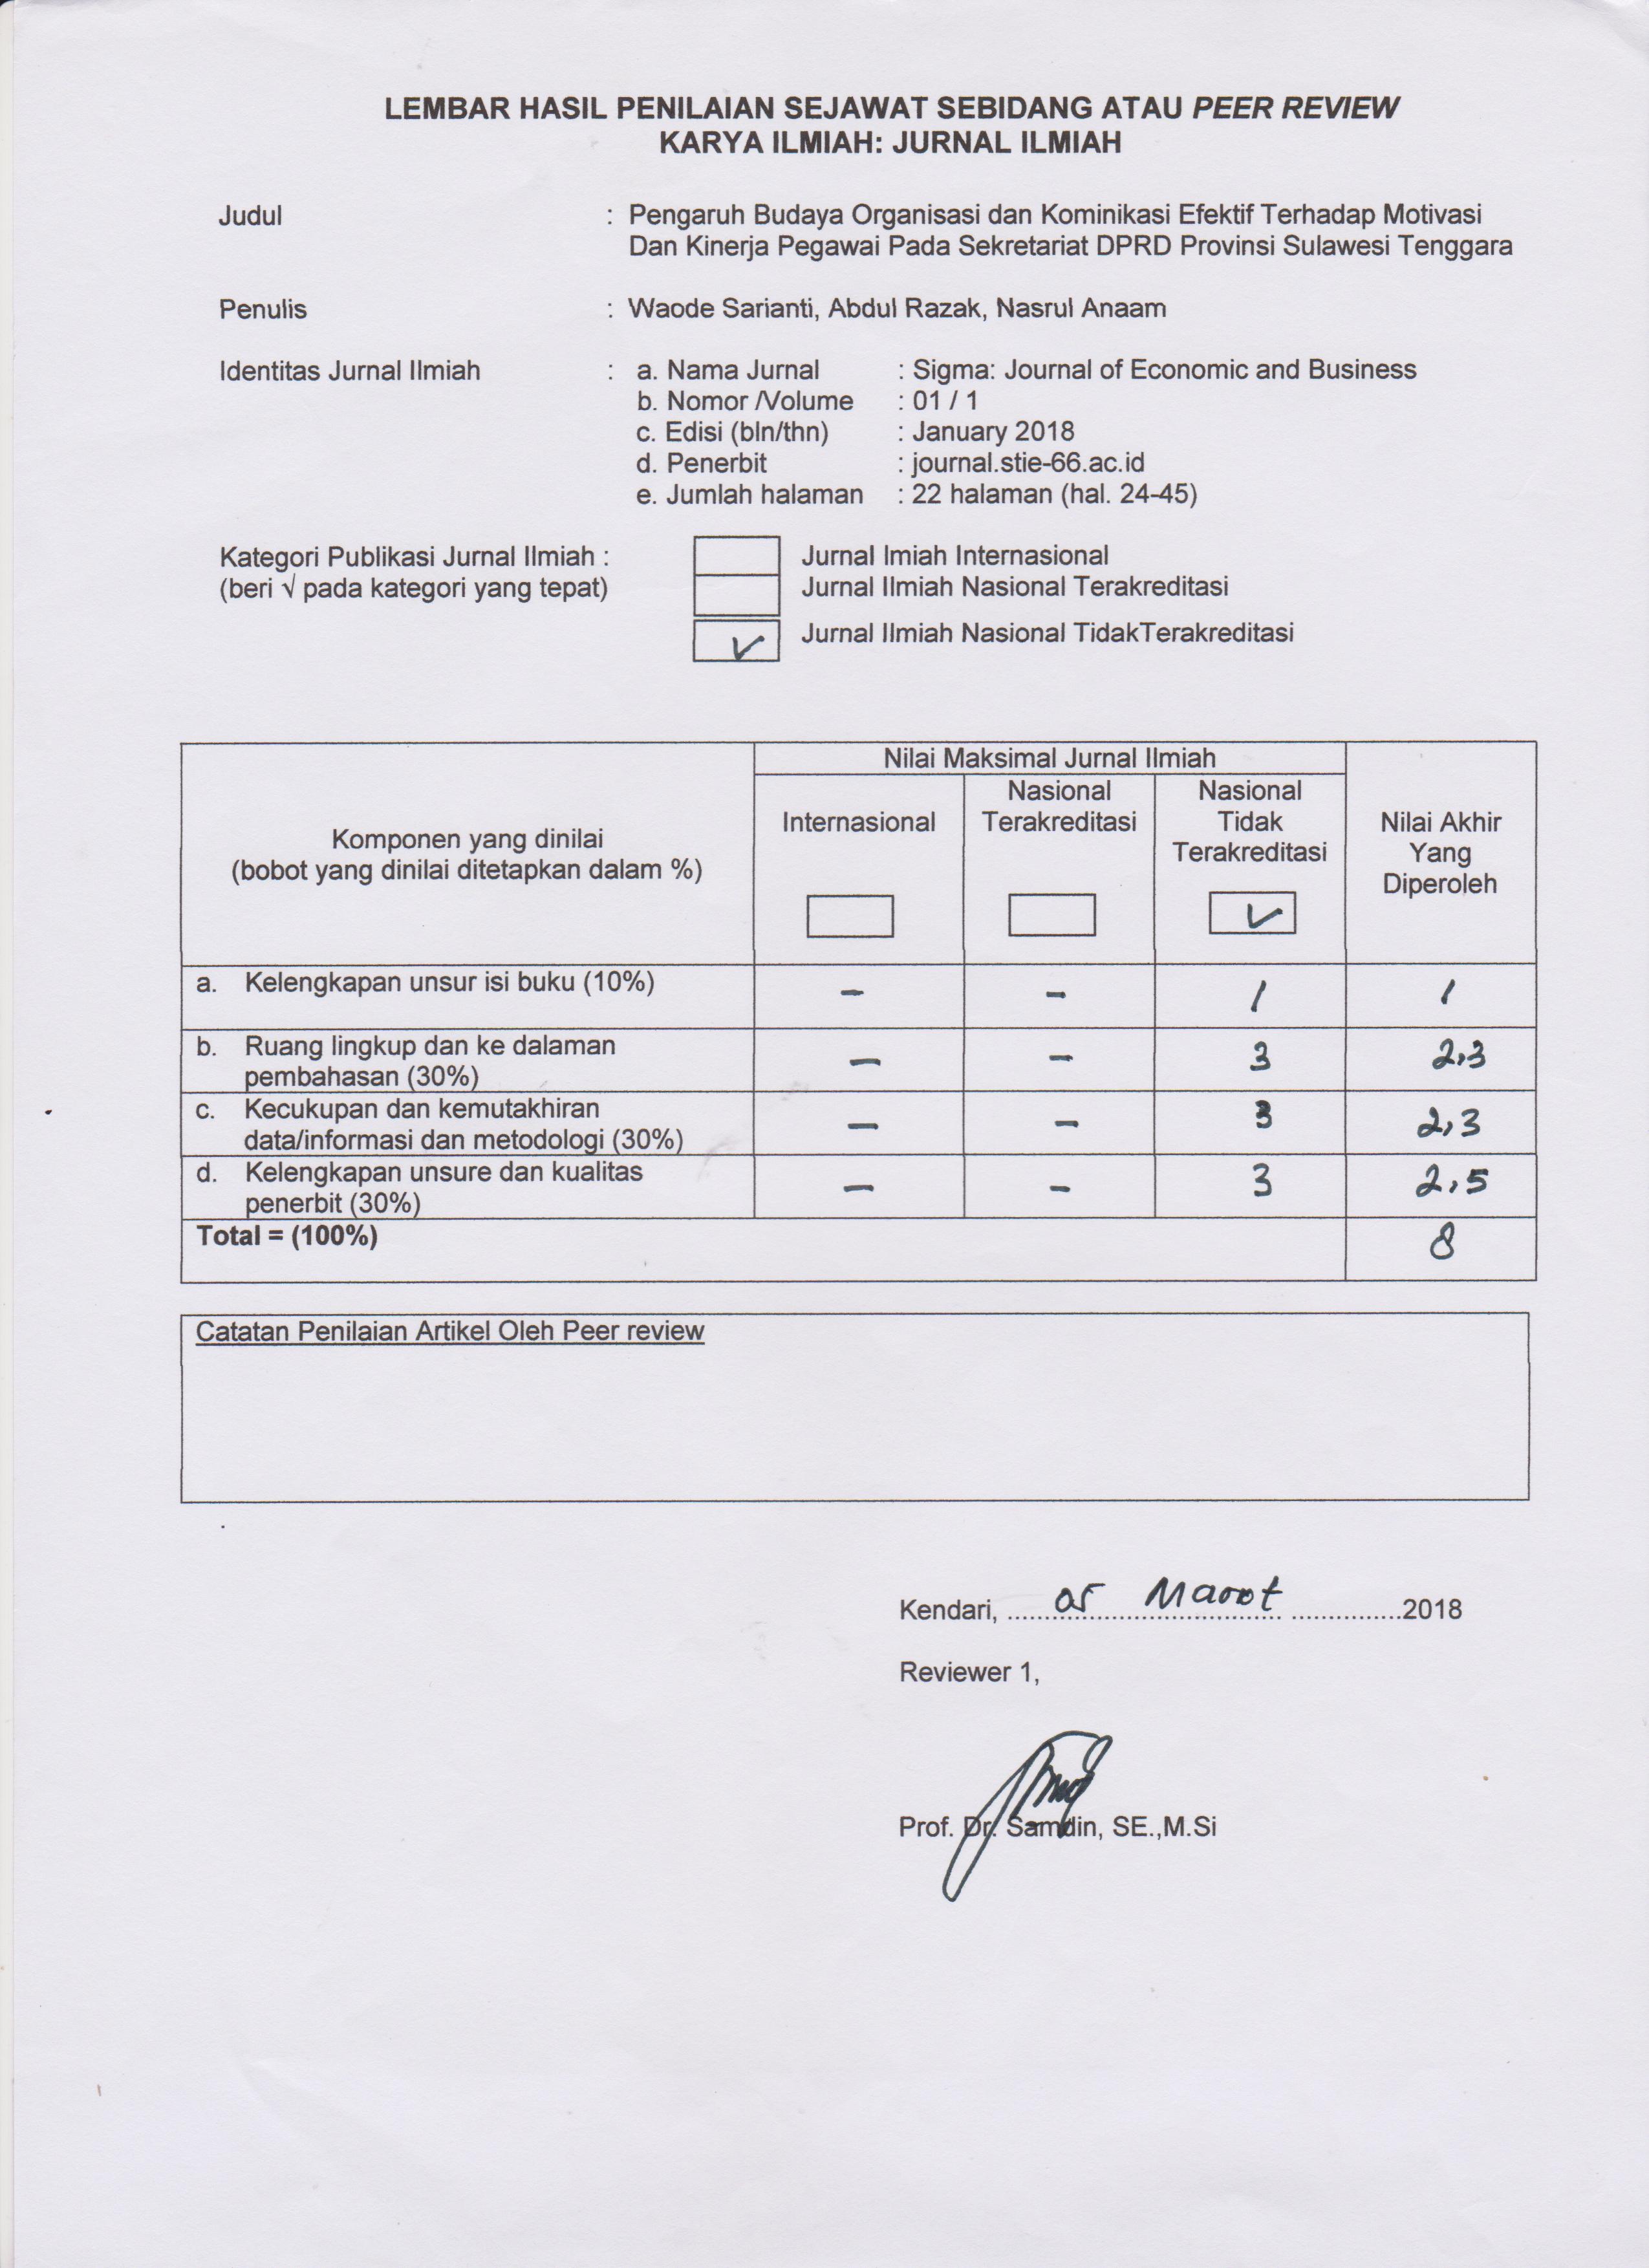 LEMBAR HASIL PENILAIAN SEJAWAT SEBIDANG ATAU PEER REVIEW
KARYA ILMIAH: JURNAL ILMIAH
Judul : Pengaruh Budaya Organisasi dan Kominikasi Efektif Terhadap Motivasi
Dan Kinerja Pegawai Pada Sekretariat DPRD Provinsi Sulawesi Tenggara
Penulis : Waode Sarianti, Abdul Razak, Nasrul Anaam
Identitas Jurnal Ilmiah : a. Nama Jurnal : Sigma: Journal of Economic and Business
b. Nomor /Volume : 01 / 1
c. Edisi (bln/thn) : January 2018
d. Penerbit : journal.stie-66.ac.id
e. Jumlah halaman : 22 halaman (hal. 24-45)
Kategori Publikasi Jurnal Ilmiah : Jurnal Imiah Internasional
(beri √ pada kategori yang tepat) Jurnal Ilmiah Nasional Terakreditasi
✓ Jurnal Ilmiah Nasional TidakTerakreditasi
Komponen yang dinilai
(bobot yang dinilai ditetapkan dalam %)
Nilai Maksimal Jurnal Ilmiah
Internasional
Nasional
Terakreditasi
Nasional
Tidak
Terakreditasi
✓
Nilai Akhir
Yang
Diperoleh
a. Kelengkapan unsur isi buku (10%) - - 1 1
b. Ruang lingkup dan ke dalaman
pembahasan (30%) - - 3 2,3
c. Kecukupan dan kemutakhiran
data/informasi dan metodologi (30%) - - 3 2,3
d. Kelengkapan unsure dan kualitas
penerbit (30%) - - 3 2,5
Total = (100%) 8
Catatan Penilaian Artikel Oleh Peer review
Kendari, 05 Maret 2018
Reviewer 1,
Prof. Dr. Samdin, SE.,M.Si